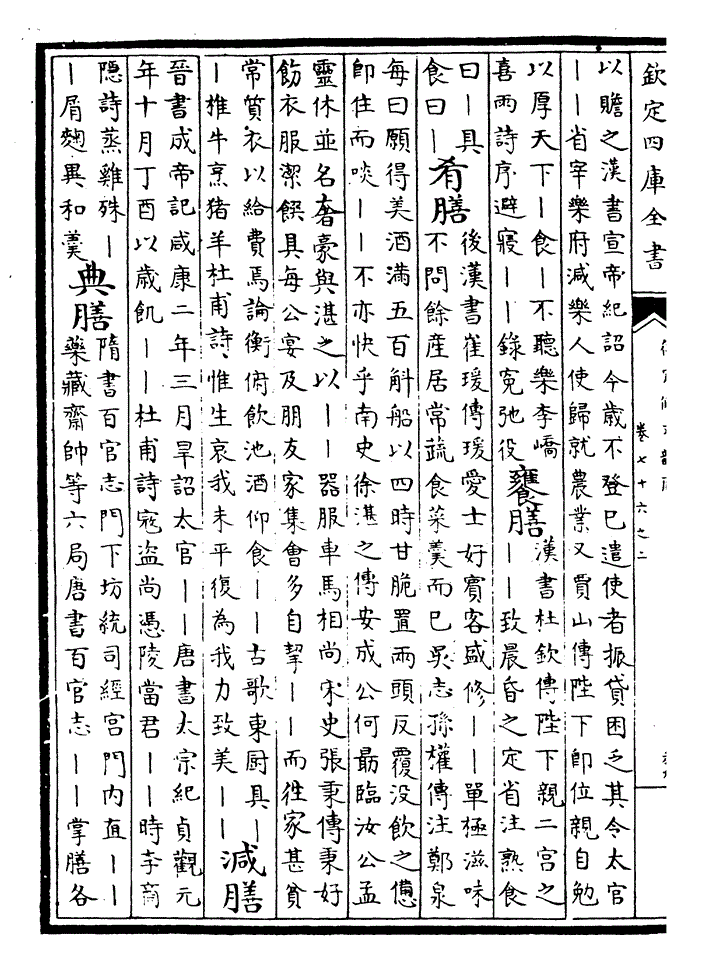 欽定四庫全書
卷七十六之二
以贍之漢書宣帝紀詔今歲不登已遣使者振貸困乏其令太官
丨丨省宰樂府減樂人使歸就農業又賈山傳陛下即位親自勉
以厚天下丨食丨不聽樂李嶠
喜雨詩序避寢丨丨錄冤弛役
饔膳
漢書杜欽傳陛下親二宮之
丨丨致晨昏之定省注熟食
曰丨具
食曰丨
肴膳
後漢書崔瑗傳瑗愛士好賓客盛修丨丨單極滋味
不問餘產居常蔬食菜羹而已吳志孫權傳注鄭泉
每曰願得美酒滿五百斛船以四時甘脆置兩頭反覆沒飲之憊
即住而啖丨丨不亦快乎南史徐湛之傳安成公何勗臨汝公孟
靈休並名奢豪與湛之以丨丨器服車馬相尚宋史張秉傳秉好
飭衣服潔饌具每公宴及朋友家集會多自挈丨丨而往家甚貧
常質衣以給費焉論衡俯飲池酒仰食丨丨古歌東厨具丨
丨椎牛烹猪羊杜甫詩惟生哀我未平復為我力致美丨丨
減膳
晉書成帝記咸康二年三月旱詔太官丨丨唐書太宗紀貞觀元
年十月丁酉以歲飢丨丨杜甫詩寇盜尚憑陵當君丨丨時李商
隱詩蒸雞殊丨
丨屑麪異和羹
典膳
隋書百官志門下坊統司經宮門內直丨丨
藥藏齋帥等六局唐書百官志丨丨掌膳各